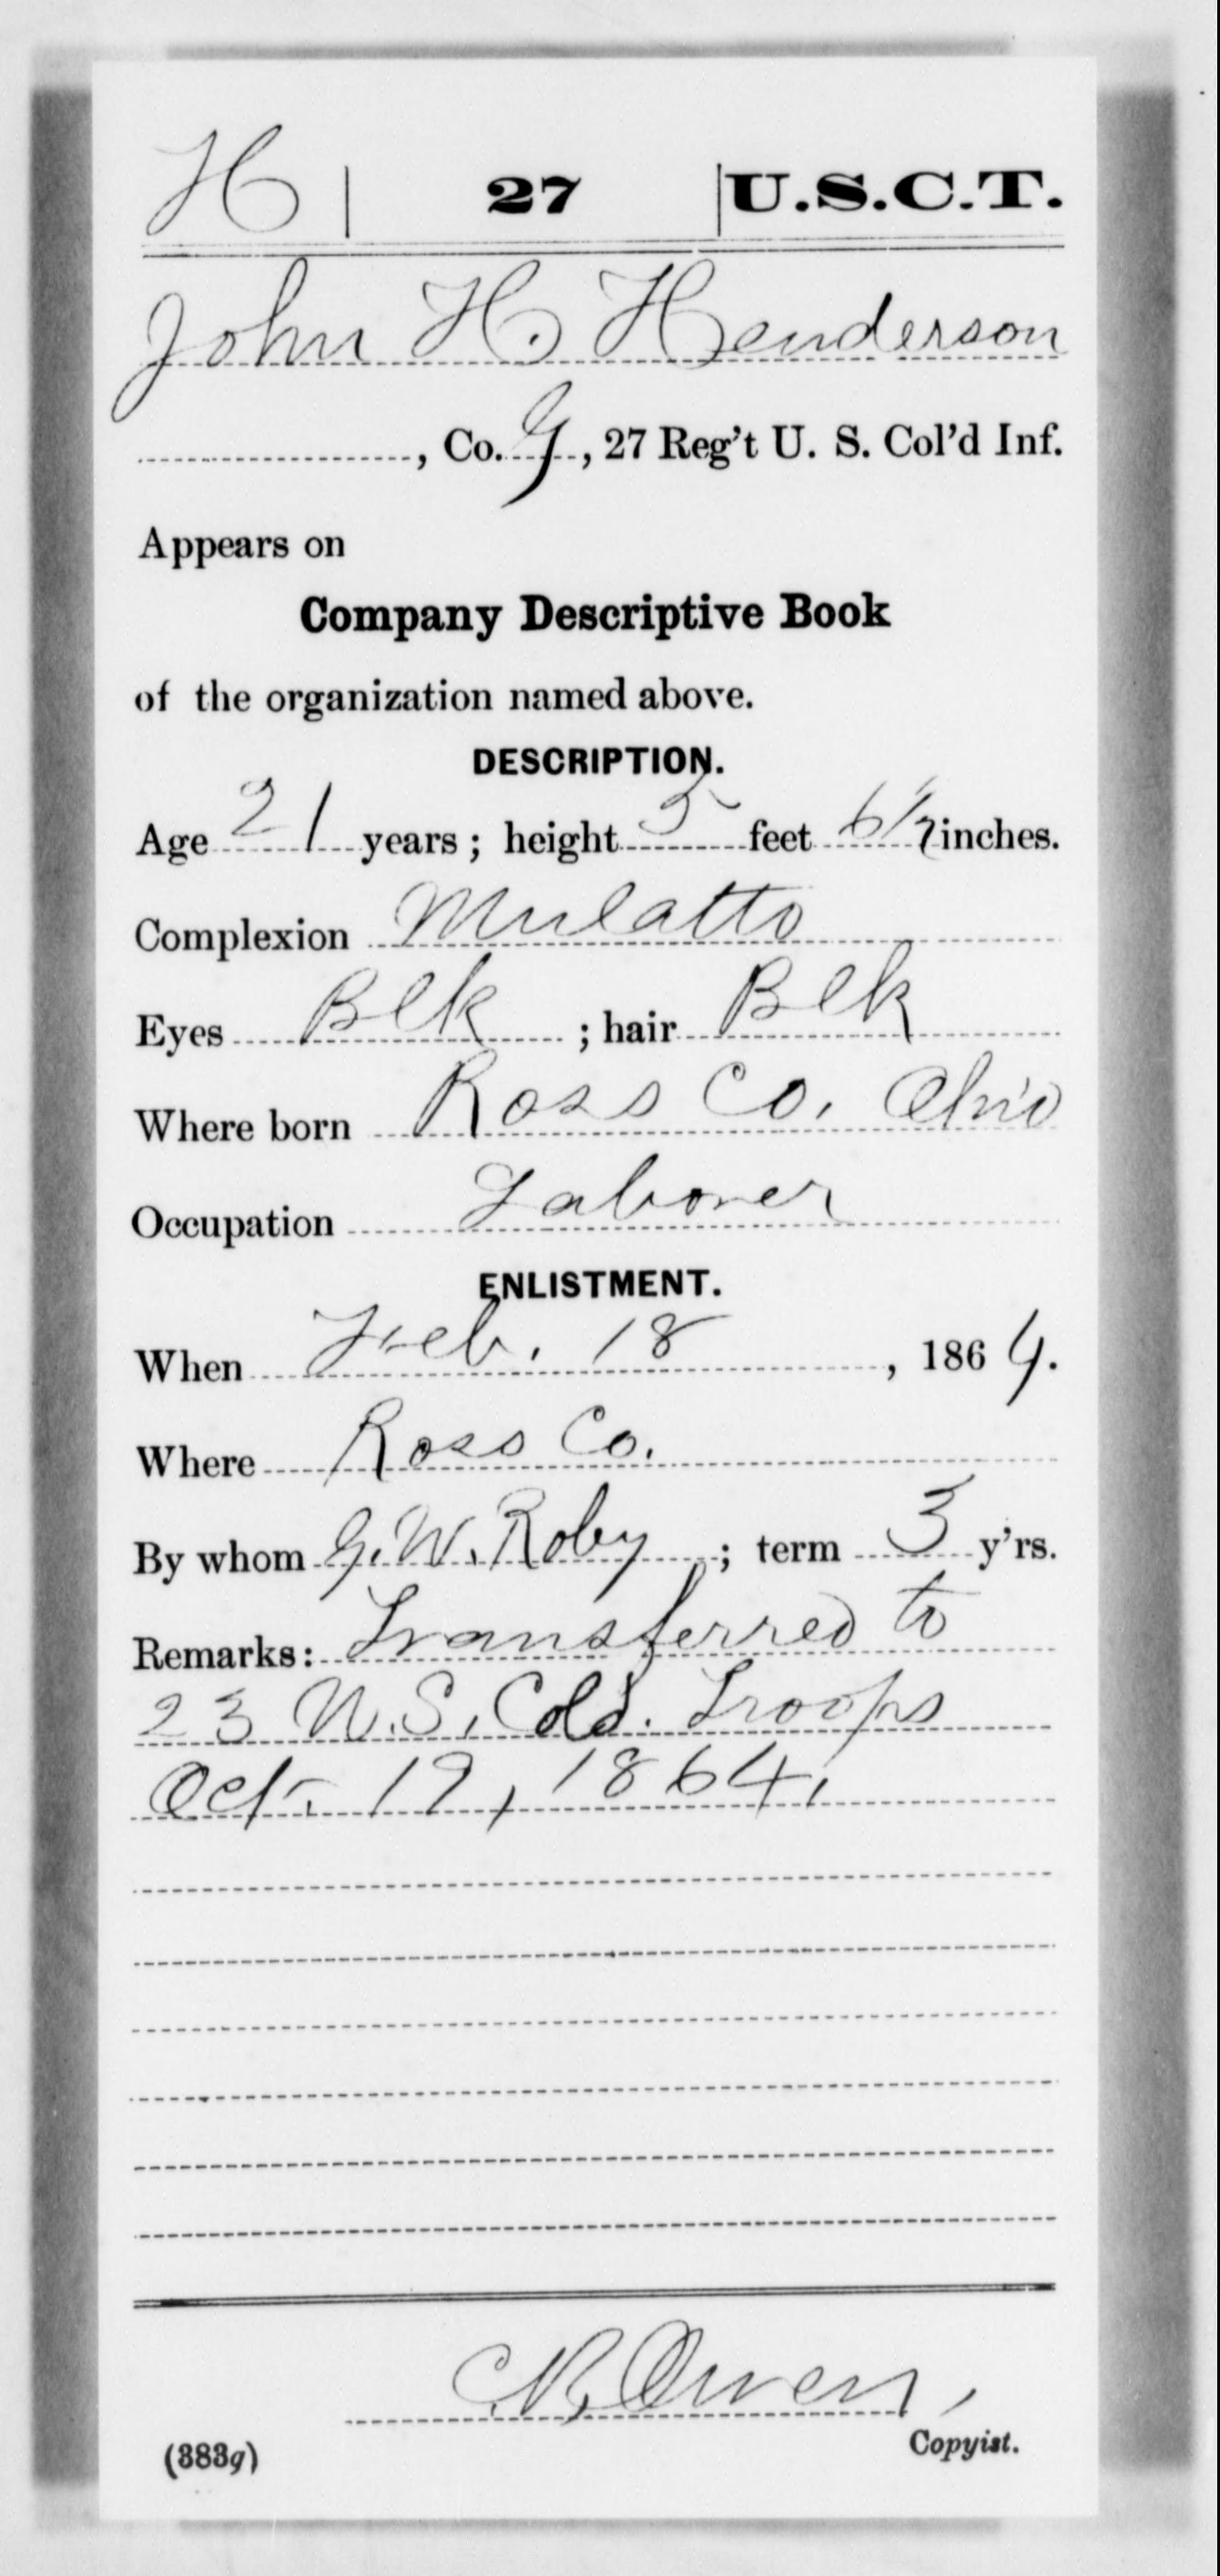 H | 27 | U.S.C.T.
John H. Henderson
, Co. G, 27 Reg't U. S. Col'd Inf.
Appears on
Company Descriptive Book
of the organization named above.
DESCRIPTION.
Age 21 years; height 5 feet 6 1/2 inches.
Complexion Mulatto
Eyes Blk ; hair Blk
Where born Ross Co. Ohio
Occupation Laborer
ENLISTMENT.
When Feb. 18, 1864.
Where Ross Co.
By whom G. W. Roby ; term 3 y'rs.
Remarks: Transferred to
23 U.S. Cold. Troops
Oct. 19, 1864.
Owen,
Copyist.
(383g)